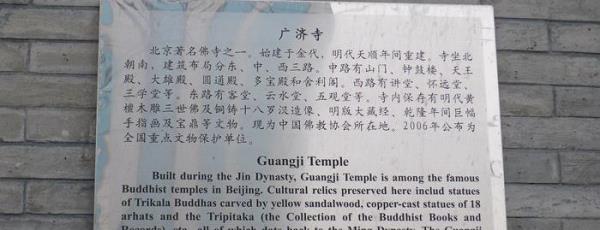 广济寺
北京著名佛寺之一。始建于金代，明代天顺年间重建。寺坐北
朝南，建筑布局分东、中、西三路。中路有山门、钟鼓楼、天王
殿、大雄殿、圆通殿、多宝殿和舍利阁。西路有讲堂、怀远堂、
三学堂等。东路有客堂、云水堂、五观堂等。寺内保存有明代黄
檀木雕三世佛及铜铸十八罗汉造像、明版大藏经、乾隆年间巨幅
手指画及宝鼎等文物。现为中国佛教协会所在地。2006年公布为
全国重点文物保护单位。
Guangji Temple
Built during the Jin Dynasty, Guangji Temple is among the famous
Buddhist temples in Beijing. Cultural relics preserved here includ statues
of Trikala Buddhas carved by yellow sandalwood, copper-cast statues of 18
arhats and the Tripitaka (the Collection of the Buddhist Books and
Records), etc., all of which date back to the Ming Dynasty. The Guangji